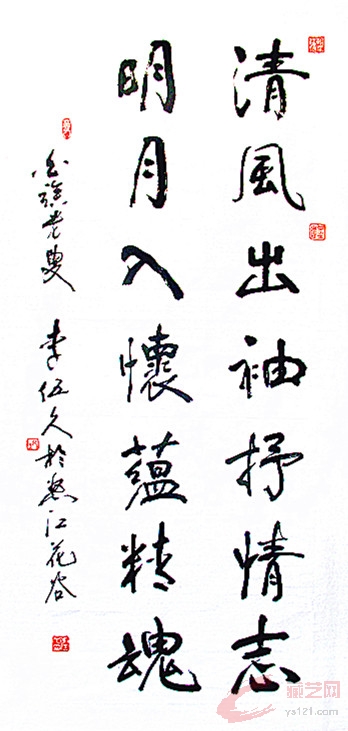 清風出袖抒情志
明月入懷蘊精魂
白族老叟 李伍久於怒江花谷
藏艺网
ys121.com